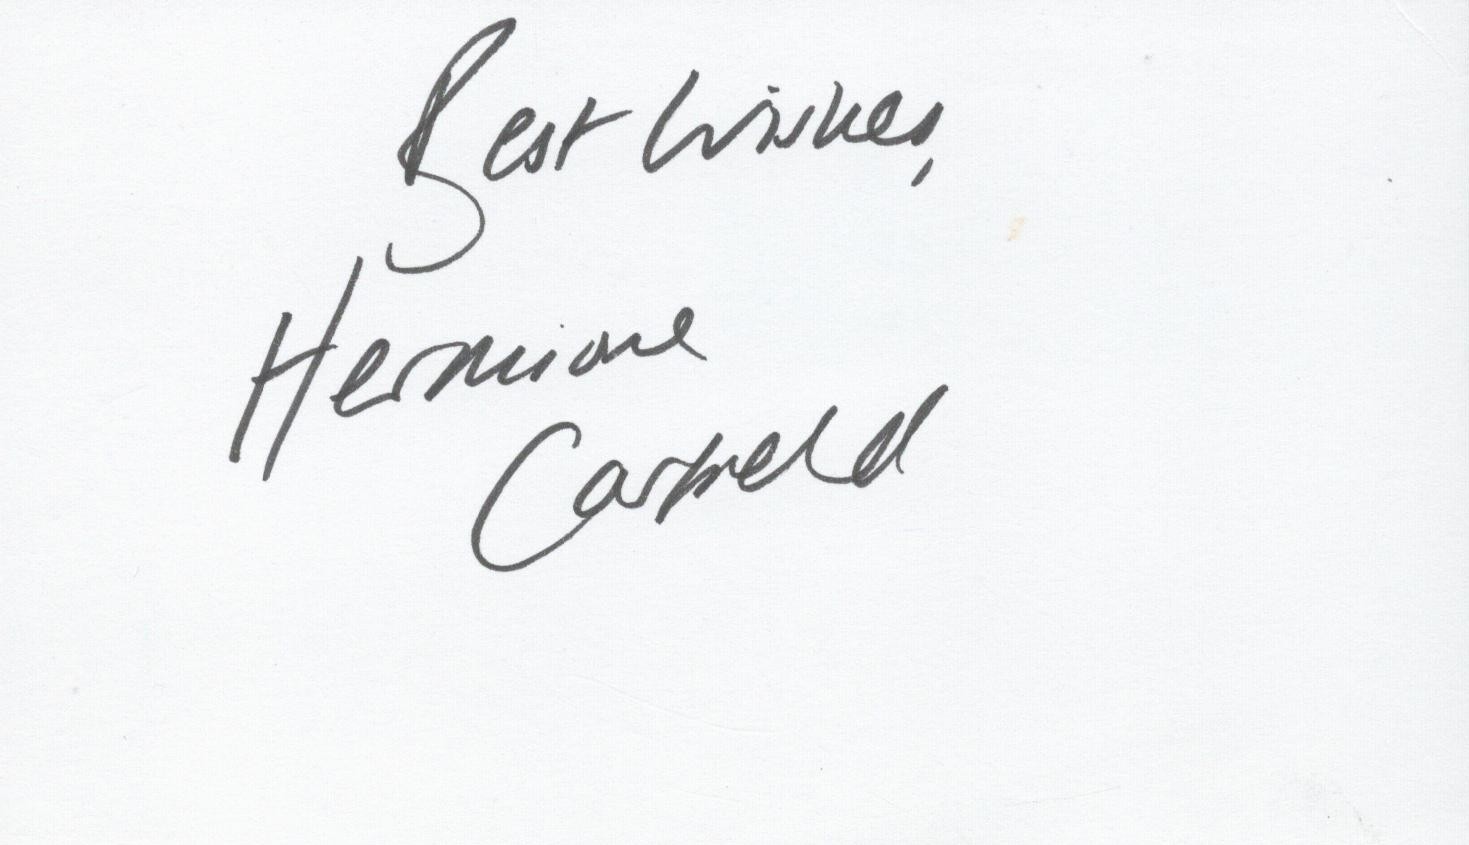 Best Wishes,
Hermione
Corfield